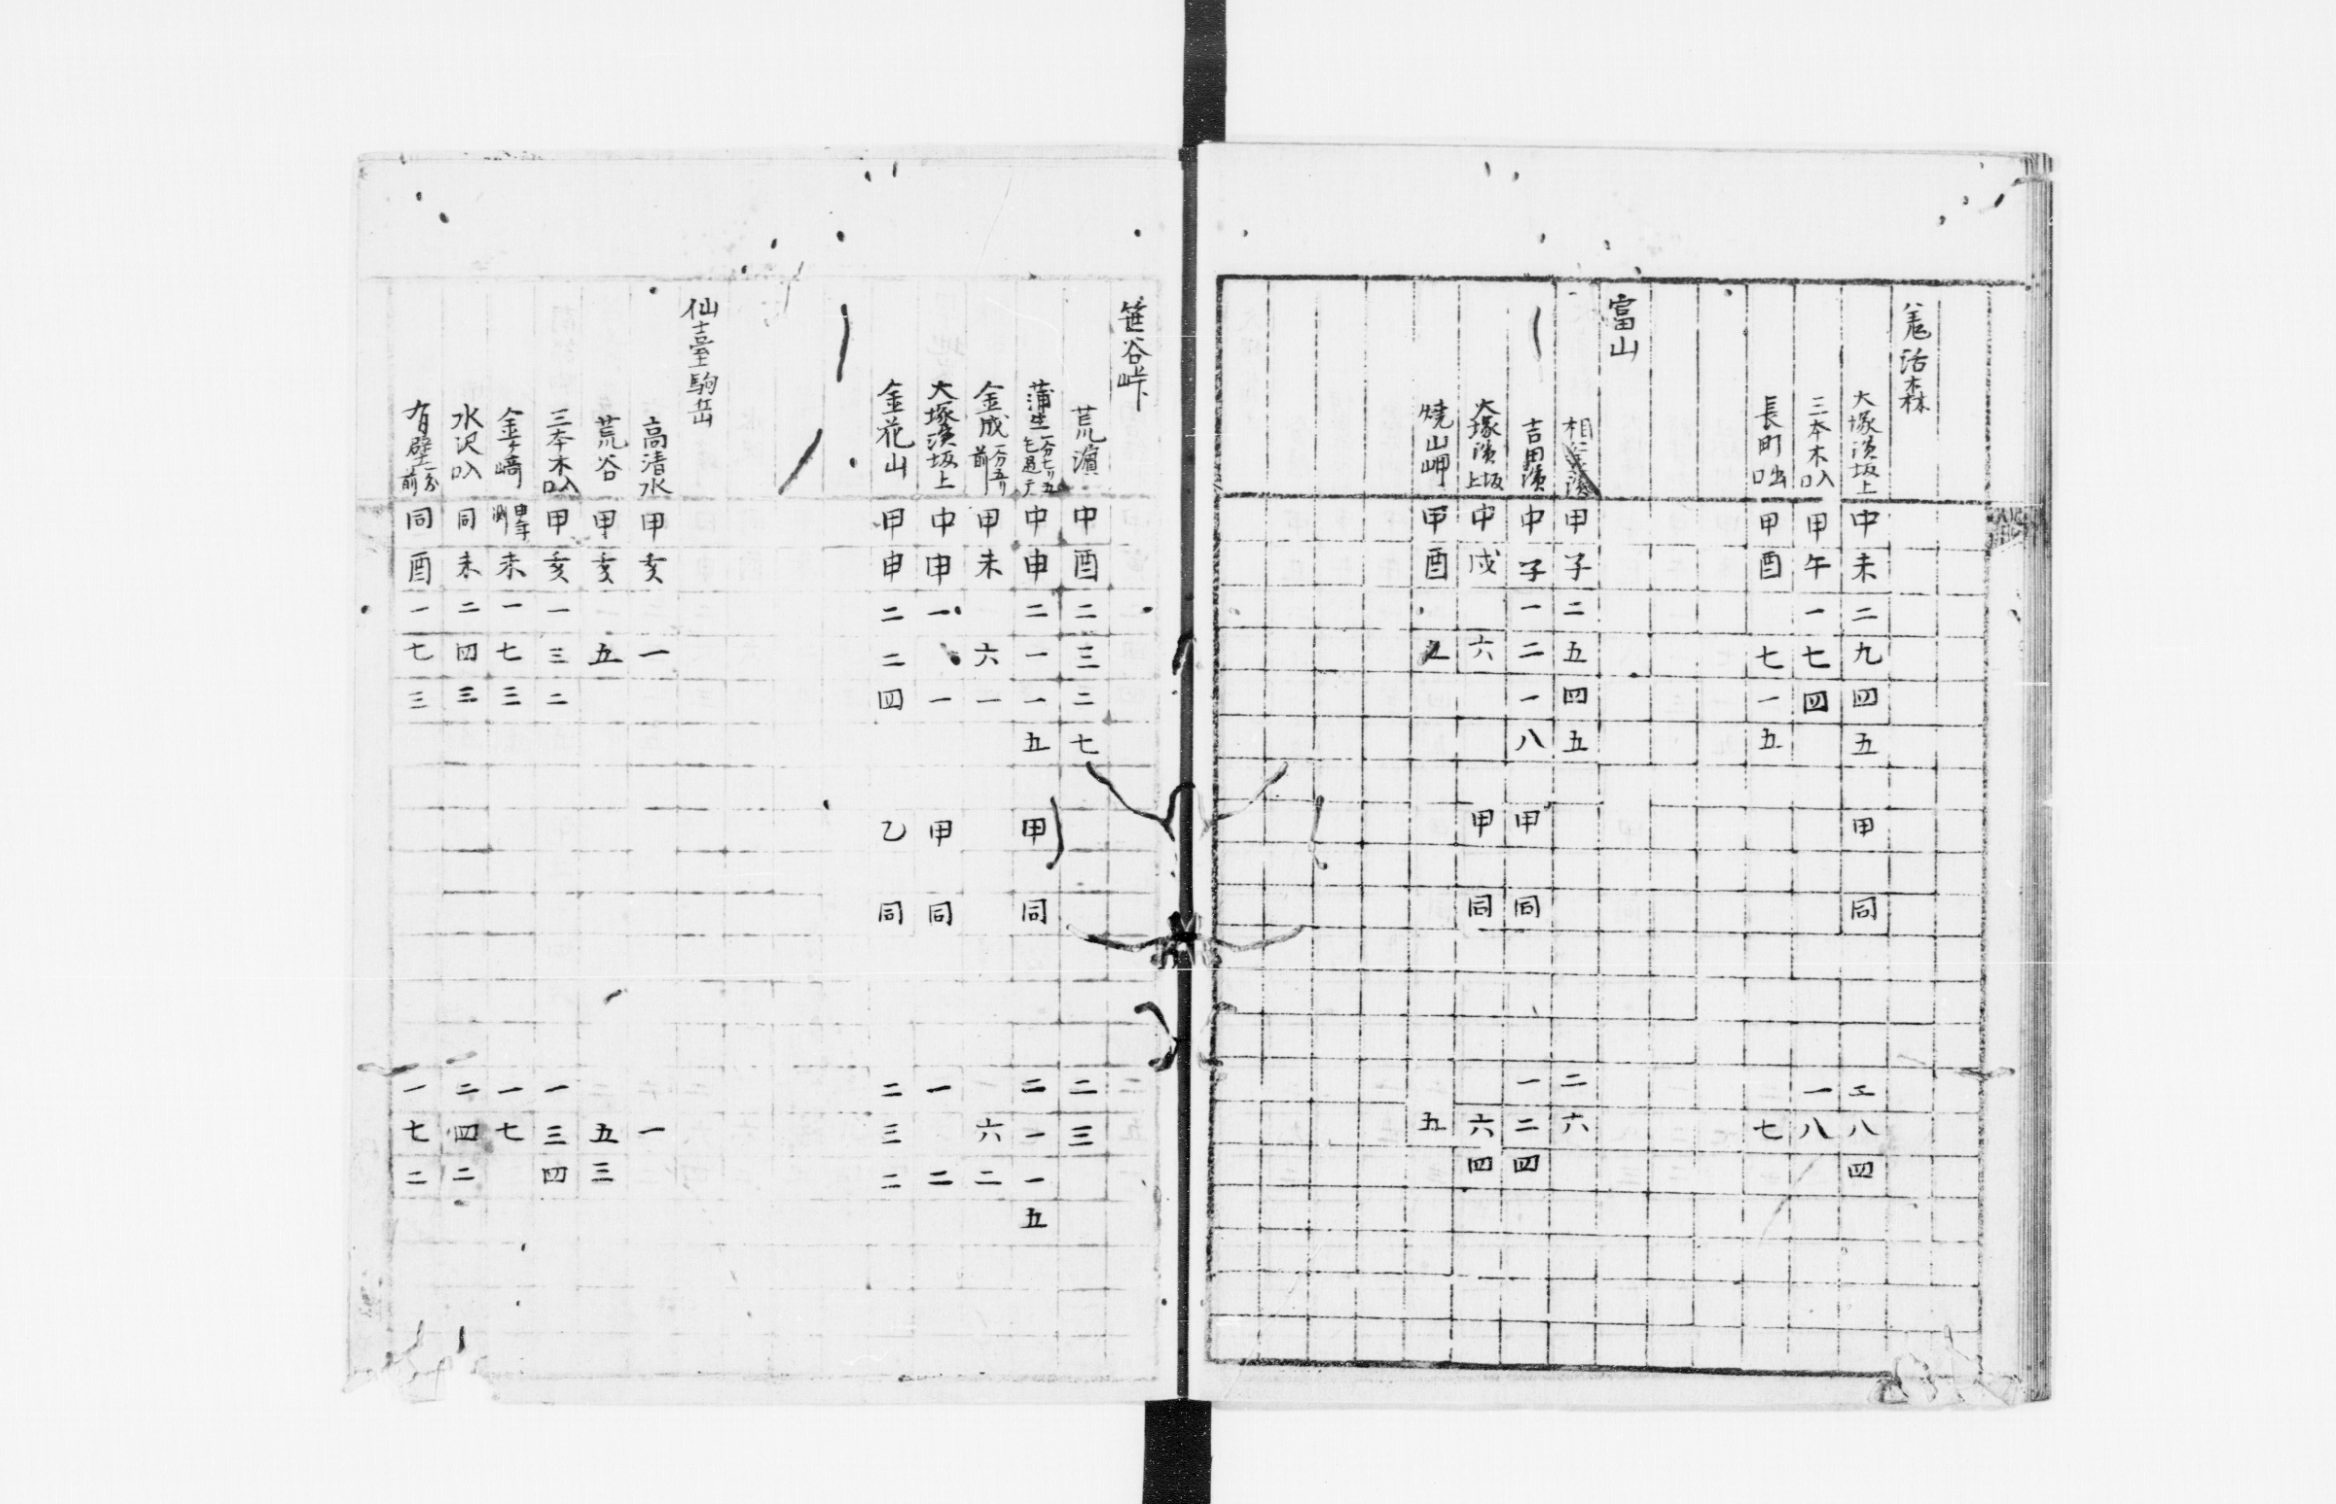 活森
大塚濱坂上 中 未 二 九 四 五 甲 同 八 四
三本木入口 甲 午 一 七 四 一 八
長町出口 甲 酉 七 一 五 七
富山
相 濱 甲 子 二 五 四 五 二 六
吉田濱 中 子 一 二 一 八 甲 同 一 二 四
大塚濱坂上 中 戌 六 甲 同 六 四
焼山岬 甲 酉 五
笹谷峠
荒濵 中 酉 二 三 二 七 二 三
蒲生 中 申 二 一 一 五 甲 同 二 一 一 五
金成 前 甲 未 六 一 六 二
大塚濱坂上 中 申 一 一 甲 同 一 二
金花山 甲 申 二 二 四 乙 同 二 三 二
仙臺駒岳
高清水 甲 亥 一 一
荒谷 甲 亥 五 五 三
三本木入口 甲 亥 一 三 二 一 三 四
金ケ崎 未 一 七 三 一 七
水沢入口 同 未 二 四 三 二 四 二
有壁 前 同 酉 一 七 三 一 七 二